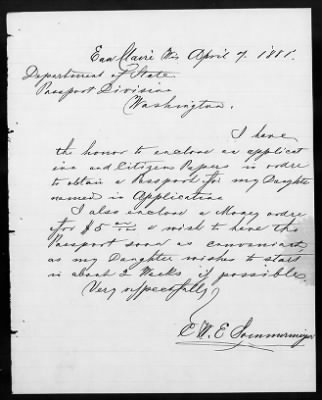 Eau Claire Wis April 7. 1888.
Department of State
Passport Division
Washington.
I have
the honor to enclose an applicat
ion and Citizens Papers in order
to obtain a Passport for my Daughter
named in Application
I also enclose a Money order
for $5 & wish to have the
Passport soon as convenient
as my Daughter wishes to start
in about 2 Weeks if possible.
Very respectfully
C W. E Sommermeyer